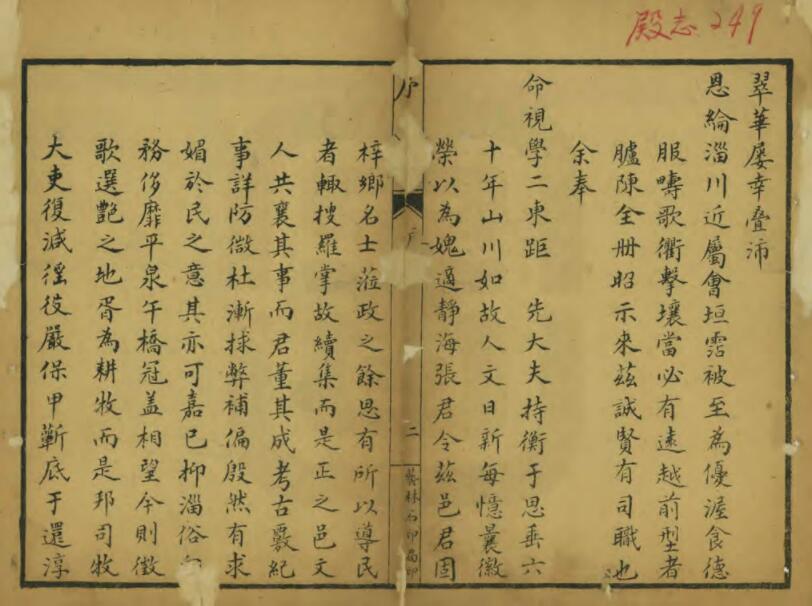 殿志 249
翠華屢幸疊沛
恩綸淄川近屬會垣霑被至為優渥食德
服疇歌衢擊壤當必有遠越前型者
臚陳全冊昭示來茲誠賢有司職也
余奉
命視學二東距 先大夫持衡于思垂六
十年山川如故人文日新每憶曩徽
榮以為媿適靜海張君令茲邑君固
序
二
藝林石印局印
梓鄉名士蒞政之餘思有所以導民
者輙搜羅掌故續集而是正之邑文
人共襄其事而君董其成考古覈紀
事詳防微杜漸捄弊補偏殷然有求
媚於民之意其亦可嘉已抑淄俗
務侈靡平泉午橋冠盖相望今則徵
歌選艷之地胥為耕牧而是邦司牧
大吏復减徭役嚴保甲蘄底于還淳